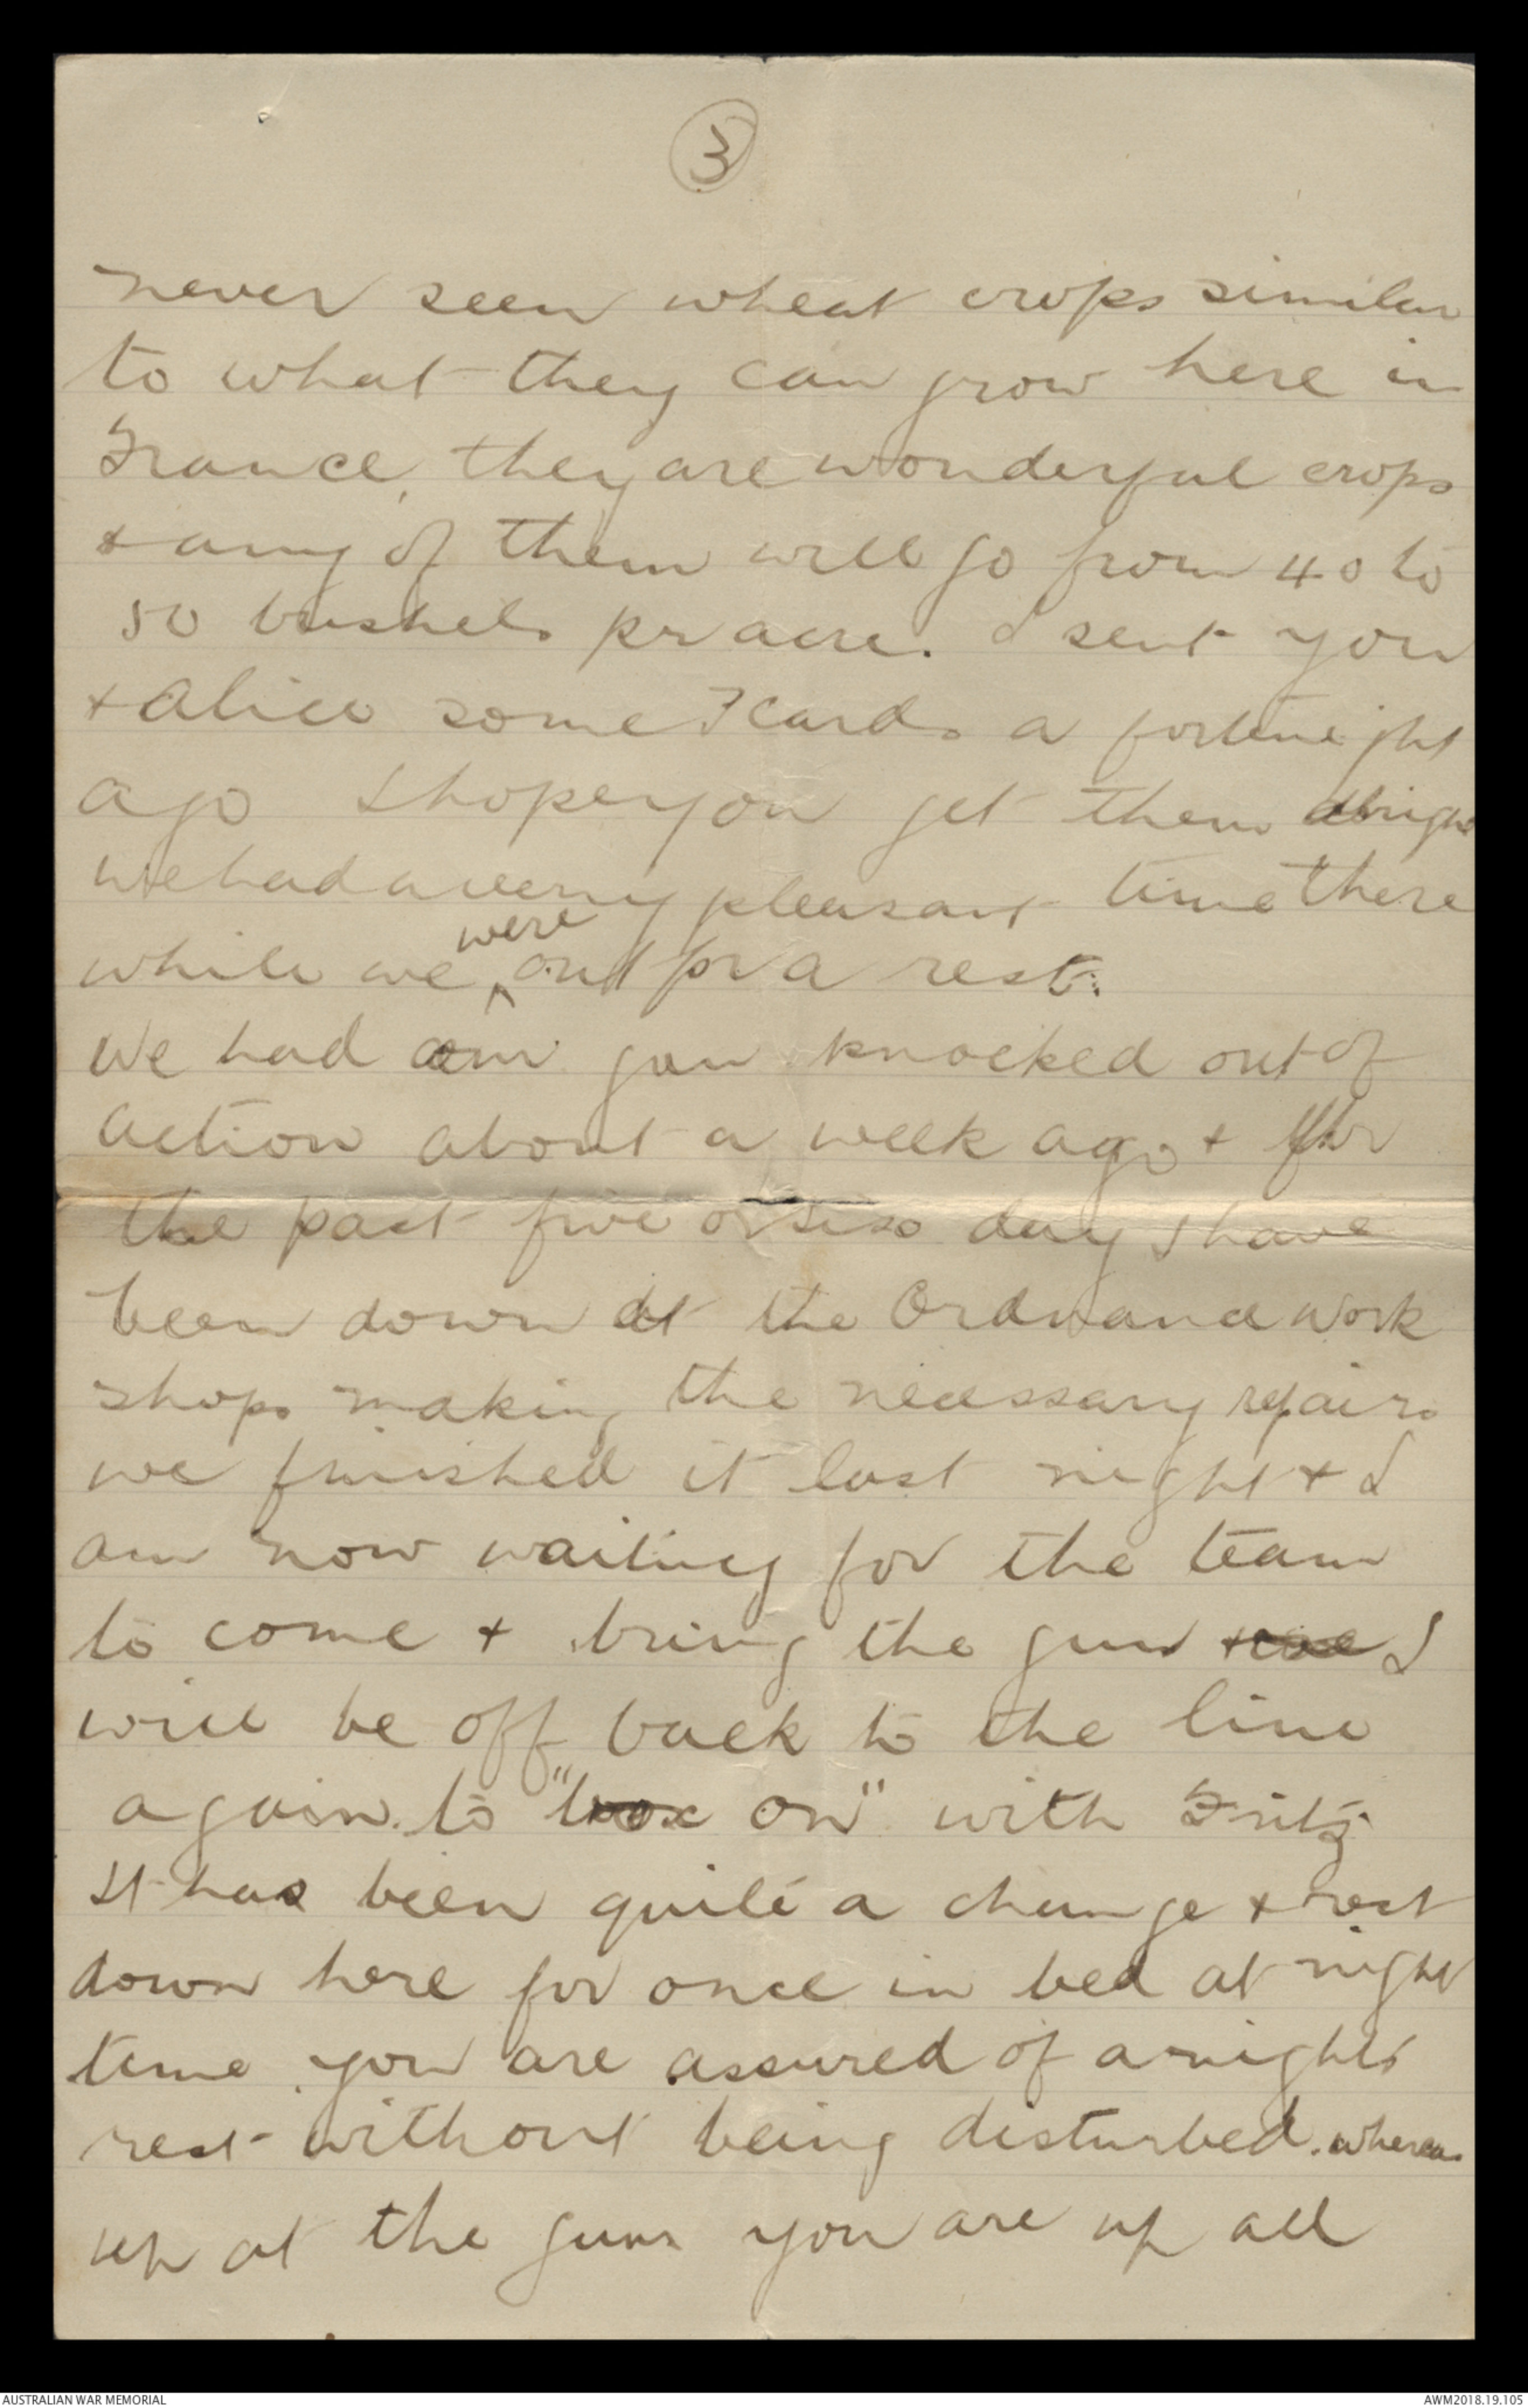 3
never seen wheat crops similar
to what they can grow here in
France, they are wonderful crops
+ any of them will go from 40 to
50 bushels pr acre. I sent you
+ Alice some P Cards a forteneight
ago I hope you get them alright
we had a very pleasant time there
while we were out for a rest.
We had our gun knocked out of
action about a week ago + for
the past five or six day I have
been down at the Ordnance Work
shops making the necessary repairs
we finished it last night + I
am now waiting for the team
to come + bring the gun I
will be off back to the line
again to "box on" with Fritz
It has been quite a change + rest
down here for once in bed at night
time you are assured of a nights
rest without being disturbed. whereas
up at the guns you are up all
AUSTRALIAN WAR MEMORIAL
AWM2018.19.105